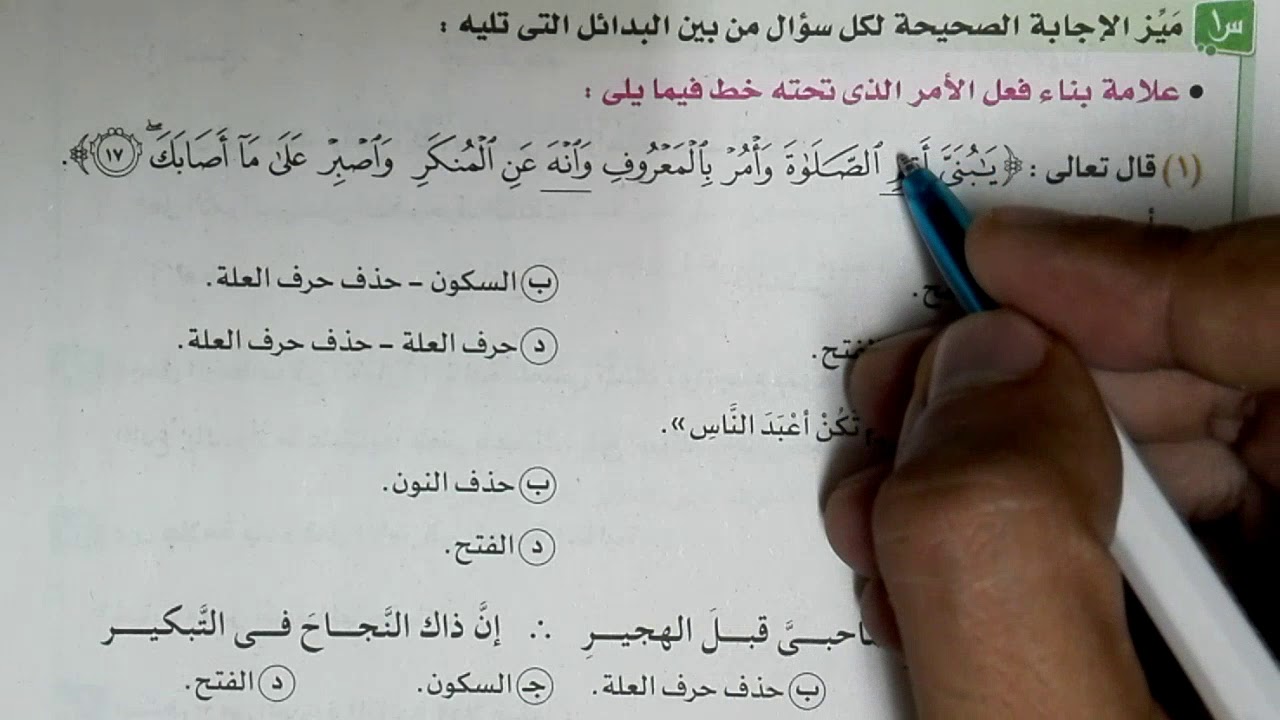 س١ مَيِّز الإجابة الصحيحة لكل سؤال من بين البدائل التى تليه :
• علامة بناء فعل الأمر الذى تحته خط فيما يلى :
(١) قال تعالى : ﴿ يَٰبُنَىَّ أَقِمِ ٱلصَّلَوٰةَ وَأْمُرْ بِٱلْمَعْرُوفِ وَٱنْهَ عَنِ ٱلْمُنكَرِ وَٱصْبِرْ عَلَىٰ مَآ أَصَابَكَ ۖ ١٧ ﴾.
ب السكون – حذف حرف العلة.
د حرف العلة – حذف حرف العلة.
الفتح.
تَكُنْ أعْبَدَ النَّاسِ».
ب حذف النون.
د الفتح.
قبلَ الهجيرِ ∴ إنَّ ذاك النَّجاحَ فى التَّبكير
ب حذف حرف العلة. جـ السكون. د الفتح.